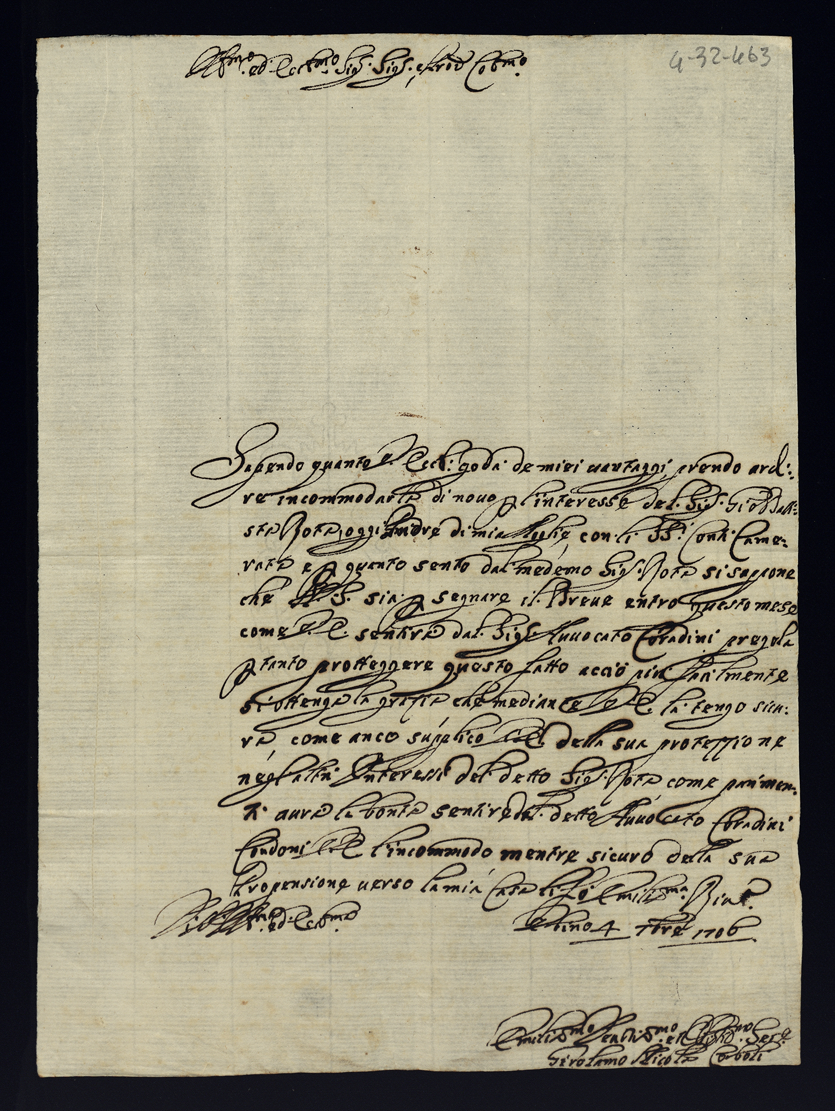 Ill.mo ed Ecc.mo Sig.r Sig.r e Prōn Col.mo
4-32-463
Sapendo quanto V. Ecc.: goda de miei vantaggi prendo ardi:
re incommodarla di novo p l'interesse del Sig.r Gio Batt:
sta Rota, oggi Padre di mia Moglie con li SS.i Conti Came:
rata e p quanto sento dal medemo Sig.r Rota si suppone
che N. S. sia p segnare il Breve entro questo mese
come V. E. sentirà dal Sig.r Avvocato Coradini pregola
p tanto protteggere questo fatto acciò più facilmente
si ottenga la grazia che mediante V. E. la tengo sicu:
ra come anco supplico V. E. della sua protezzione
negl'altri Interessi del detto Sig.r Rota come parimen:
ti avrà la bontà sentire dal detto Avvocato Coradini
Condoni V. E. l'incommodo mentre sicuro della sua
Propensione verso la mia Casa le fò Umiliss.ma River.
Di V. Ecc.
Urbino 4 7bre 1706
Umiliss.mo Devotiss.mo et Obblig.mo Ser.e
Girolamo Nicola Corboli